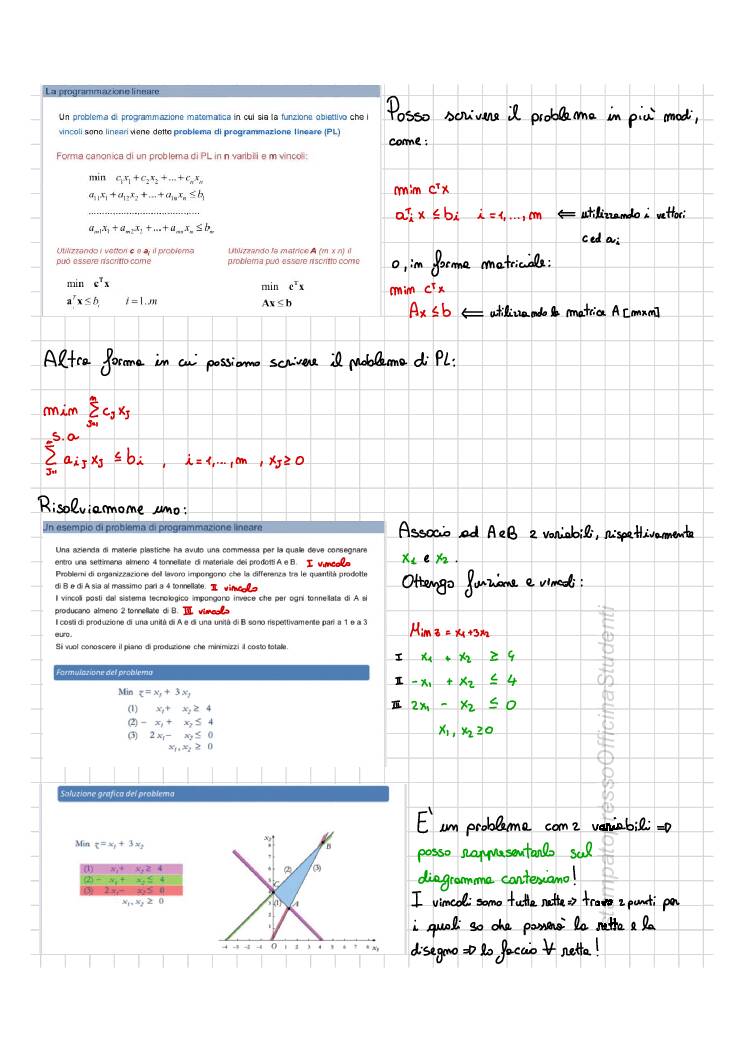 La programmazione lineare
Un problema di programmazione matematica in cui sia la funzione obiettivo che i
vincoli sono lineari viene detto problema di programmazione lineare (PL)
Forma canonica di un problema di PL in n varibili e m vincoli:
min c₁x₁+c₂x₂+...+cₙxₙ
a₁₁x₁+a₁₂x₂+...+a₁ₙxₙ ≤ b₁
..........................................
aₘ₁x₁+aₘ₂x₂+...+aₘₙxₙ ≤ bₘ
Utilizzando i vettori c e aᵢ il problema
può essere riscritto come
min cᵀx
aᵢᵀx ≤ bᵢ i=1..m
Utilizzando la matrice A (m x n) il
problema può essere riscritto come
min cᵀx
Ax ≤ b
Posso scrivere il problema in più modi,
come:
min cᵀx
aᵢᵀx ≤ bᵢ i=1,...,m ⇐ utilizzando i vettori
c ed aᵢ
O, in forma matriciale:
min cᵀx
Ax ≤ b ⇐ utilizzando la matrice A [m×n]
Altra forma in cui possiamo scrivere il problema di PL:
min Σ cⱼ xⱼ
s.a
Σ aᵢⱼ xⱼ ≤ bᵢ , i=1,...,m , xⱼ ≥ 0
Risolviamone uno:
Un esempio di problema di programmazione lineare
Una azienda di materie plastiche ha avuto una commessa per la quale deve consegnare
entro una settimana almeno 4 tonnellate di materiale dei prodotti A e B. I vincolo
Problemi di organizzazione del lavoro impongono che la differenza tre le quantità prodotte
di B e di A sia al massimo pari a 4 tonnellate. II vincolo
I vincoli posti dal sistema tecnologico impongono invece che per ogni tonnellata di A si
producano almeno 2 tonnellate di B. III vincolo
I costi di produzione di una unità di A e di una unità di B sono rispettivamente pari a 1 e a 3
euro.
Si vuol conoscere il piano di produzione che minimizzi il costo totale.
Formulazione del problema
Min ζ = x₁ + 3 x₂
(1) x₁+ x₂ ≥ 4
(2) − x₁ + x₂ ≤ 4
(3) 2 x₁− x₂ ≤ 0
x₁, x₂ ≥ 0
Associo ad A e B 2 variabili, rispettivamente
x₁ e x₂.
Ottengo funzione e vincoli:
Min z = x₁+3x₂
I x₁ + x₂ ≥ 4
II -x₁ + x₂ ≤ 4
III 2x₁ - x₂ ≤ 0
x₁, x₂ ≥ 0
Soluzione grafica del problema
Min ζ = x₁ + 3 x₂
(1) x₁+ x₂ ≥ 4
(2) − x₁ + x₂ ≤ 4
(3) 2 x₁− x₂ ≤ 0
x₁, x₂ ≥ 0
x₂
8
7
6
5
4
3
2
1
B
(2)
(3)
C
(1)
A
-4 -3 -2 -1 O 1 2 3 4 5 6 7 8 x₁
È un problema con 2 variabili ⇒
posso rappresentarlo sul
diagramma cartesiano!
I vincoli sono tutte rette ⇒ trovo 2 punti per
i quali so che passerà la retta e la
disegno ⇒ lo faccio ∀ retta!
Stampato presso Officina Studenti